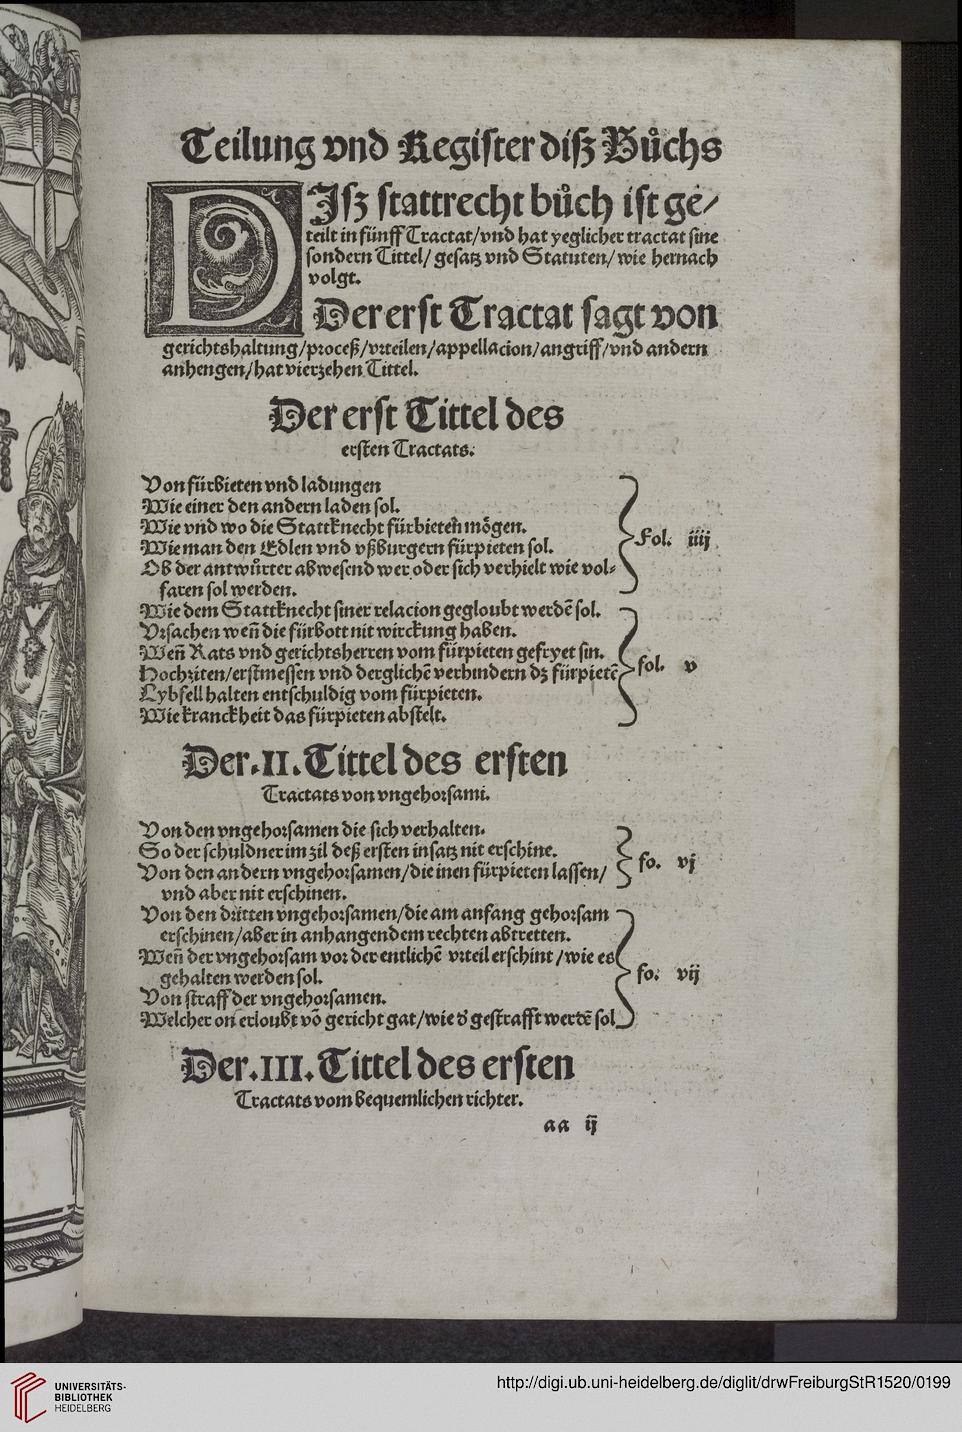 Teilung vnd Register disz Bůchs
DIsz stattrecht bůch ist ge/
teilt in fünff Tractat/vnd hat yeglicher tractat sine
sondern Tittel/ gesatz vnd Statuten/ wie hernach
volgt.
Der erst Tractat sagt von
gerichtshaltung/proceß/vrteilen/appellacion/angriff/vnd andern
anhengen/hat vierzehen Tittel.
Der erst Tittel des
ersten Tractats.
Von fürbieten vnd ladungen
Wie einer den andern laden sol.
Wie vnd wo die Stattknecht fürbieten mögen.
Wie man den Edlen vnd vßburgern fürpieten sol.
Fol. iiij
Ob der antwürter abwesend wer oder sich verhielt wie vol-
faren sol werden.
Wie dem Stattknecht siner relacion gegloubt werdē sol.
Vrsachen weñ die fürbott nit wirckung haben.
Weñ Rats vnd gerichtsherren vom fürpieten gefryet sin.
Hochziten/erstmessen vnd derglichē verhindern dz fürpietē
fol. v
Lybfell halten entschuldig vom fürpieten.
Wie kranckheit das fürpieten abstelt.
Der.II.Tittel des ersten
Tractats von vngehorsami.
Von den vngehorsamen die sich verhalten.
So der schuldner im zil deß ersten insatz nit erschine.
Von den andern vngehorsamen/die inen fürpieten lassen/
fo. vj
vnd aber nit erschinen.
Von den dritten vngehorsamen/die am anfang gehorsam
erschinen/aber in anhangendem rechten abtretten.
Weñ der vngehorsam vor der entlichē vrteil erschint/wie es
gehalten werden sol.
fo. vij
Von straff der vngehorsamen.
Welcher on erloubt vō gericht gat/wie d' gestrafft werdē sol
Der.III.Tittel des ersten
Tractats vom bequemlichen richter.
aa ij
UNIVERSITÄTS-
BIBLIOTHEK
HEIDELBERG
http://digi.ub.uni-heidelberg.de/diglit/drwFreiburgStR1520/0199